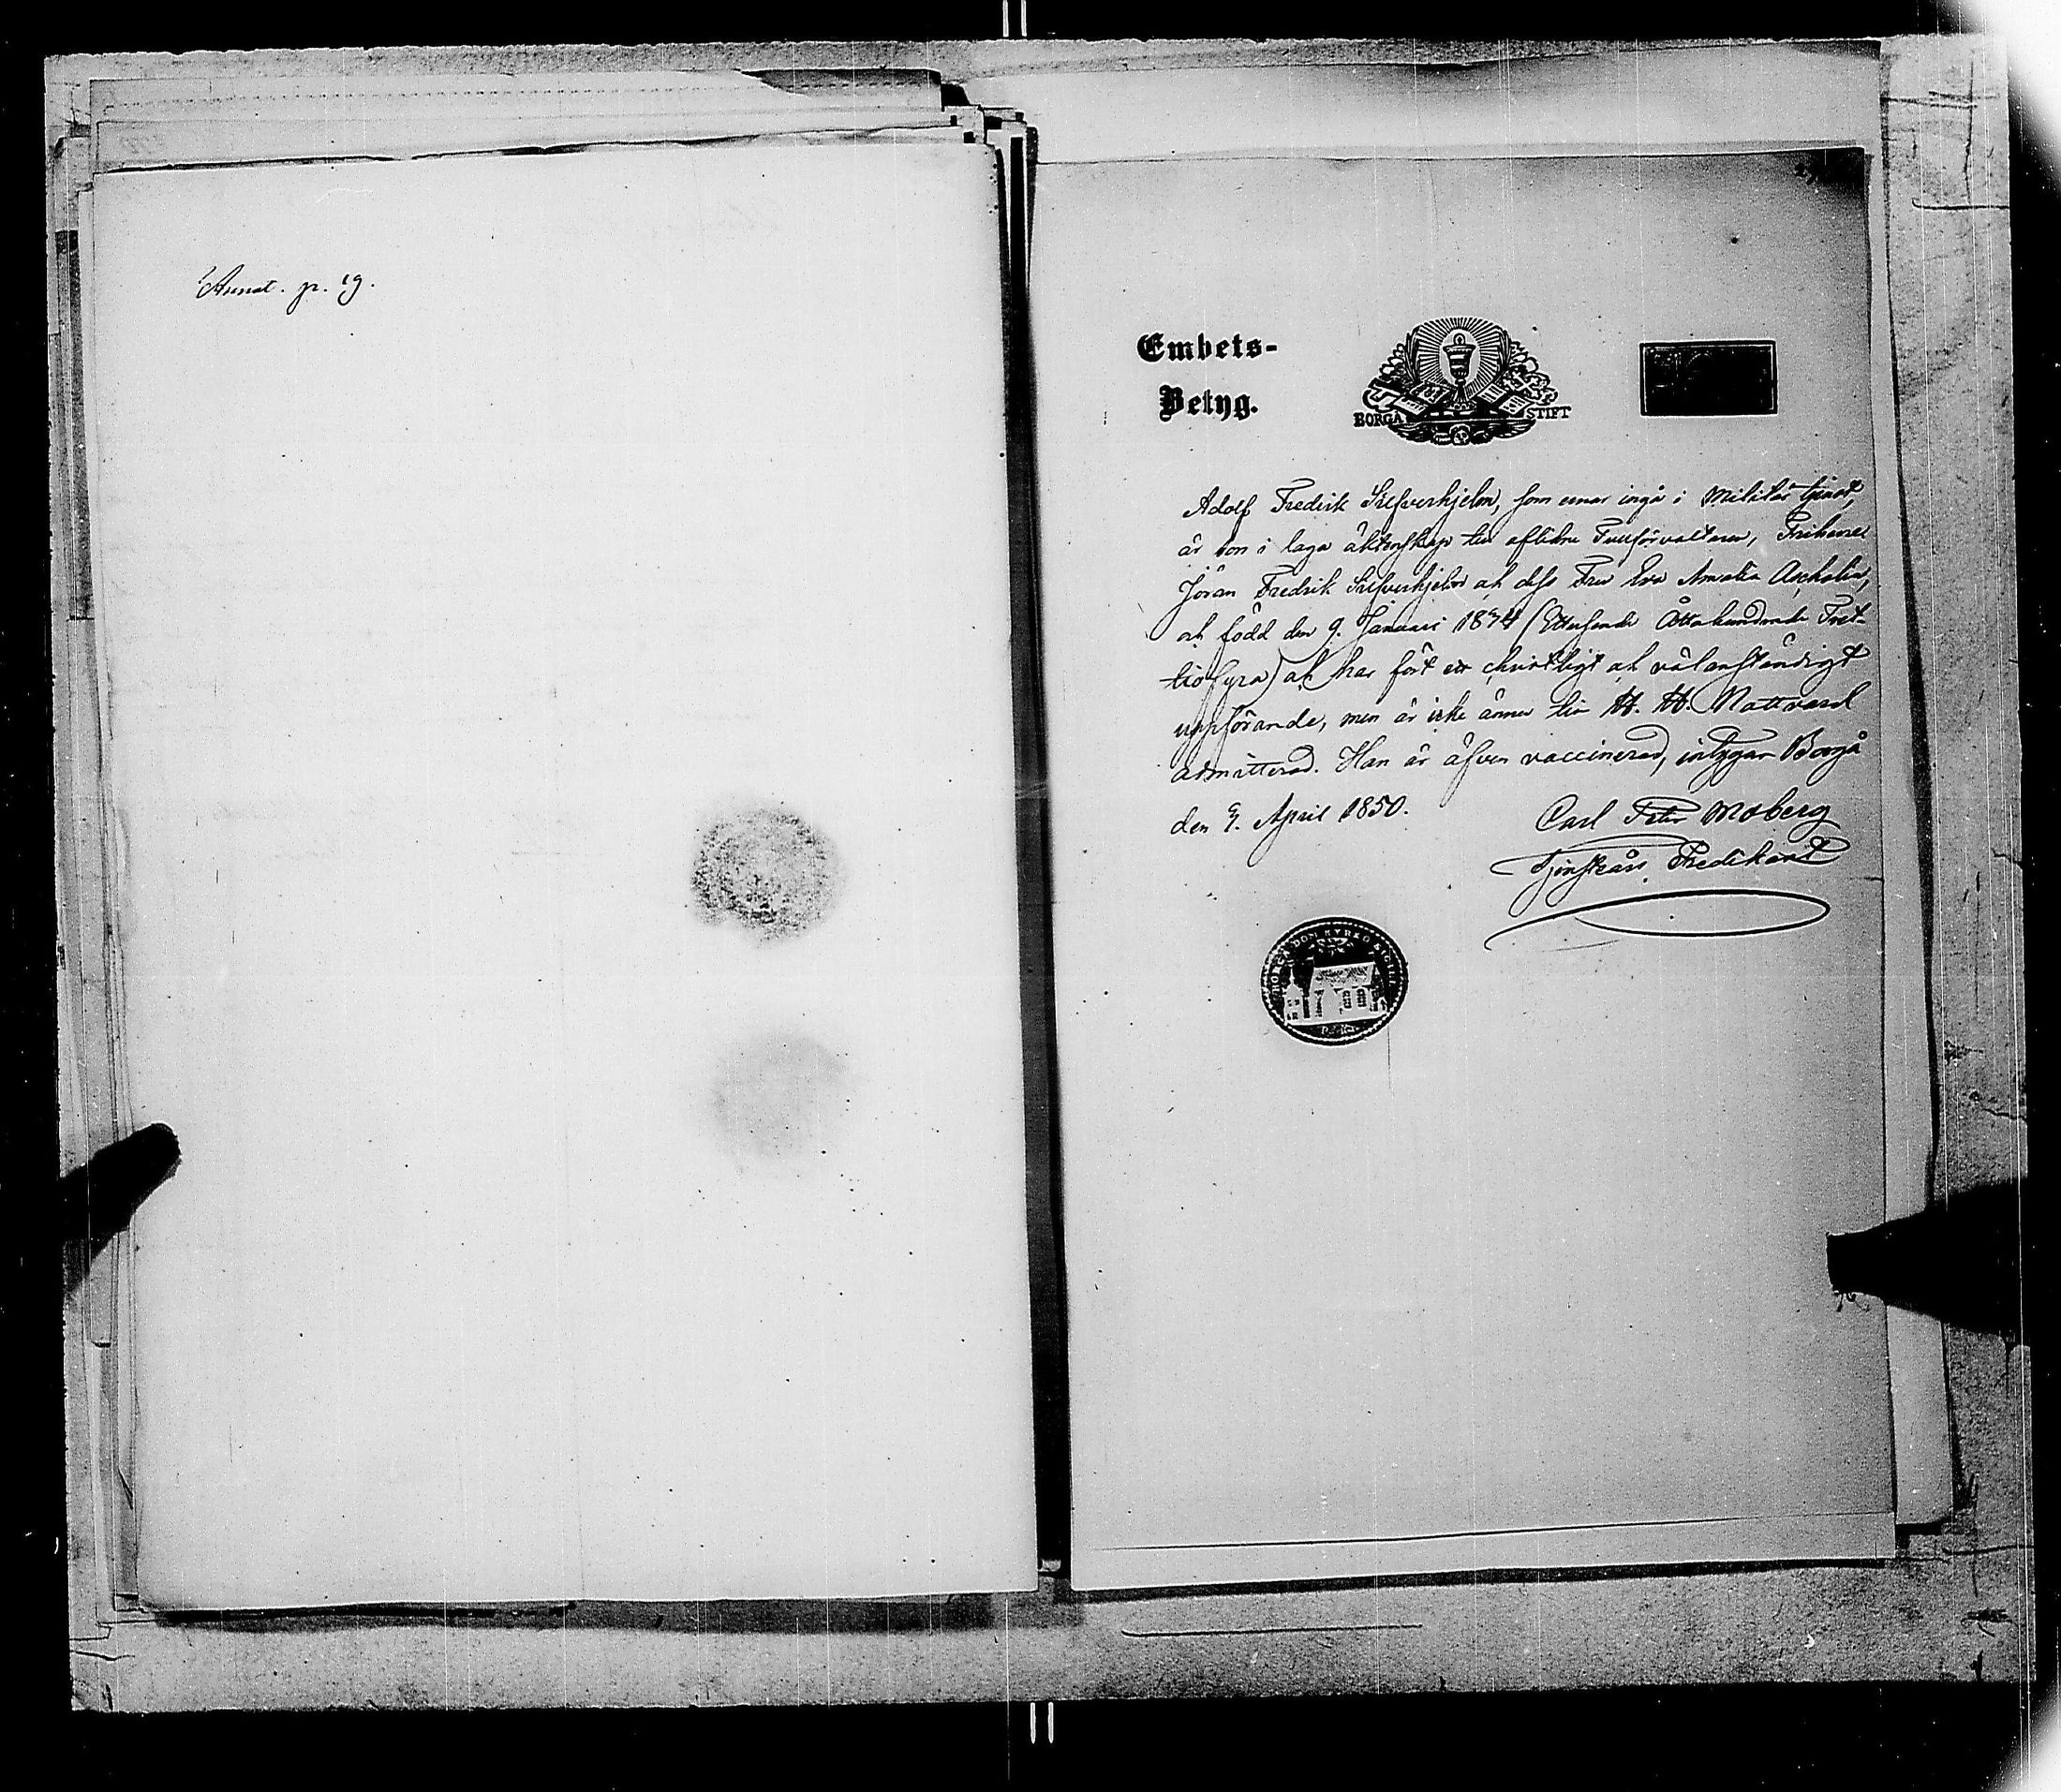 Annot. p. 19.
Embets-
Betyg.
BORGÅ STIFT
Adolf Fredrik Silfverhjelm, som ernar ingå i Militär tjenst,
är son i laga äktenskap till aflidne Tullförvaltaren, Friherre
Jöran Fredrik Silfverhjelm och dess Fru Eva Amalia
och född den 9. Januari 1834 (Ettusende Åttahundrade Tret-
tiofyra) och har fört ett christligt och välanständigt
uppförande, men är icke ännu till H. H. Nattvard
admitterad. Han är äfven vaccinerad, intygar Borgå
den 9. April 1850.
Carl Peter Moberg
Predikant
DOM KYRKO